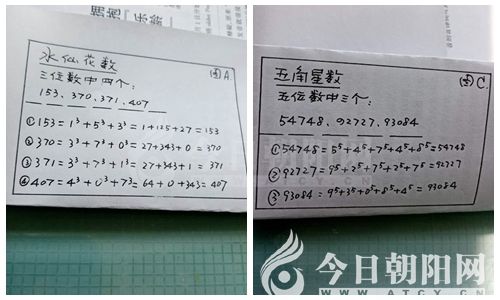 水仙花数
图A
三位数中四个:
153、370、371、407
①153=1³+5³+3³=1+125+27=153
②370=3³+7³+0³=27+343+0=370
③371=3³+7³+1³=27+343+1=371
④407=4³+0³+7³=64+0+343=407
五角星数
图C
五位数中三个:
54748、92727、93084
①54748=5⁵+4⁵+7⁵+4⁵+8⁵=54748
②92727=9⁵+2⁵+7⁵+2⁵+7⁵=92727
③93084=9⁵+3⁵+0⁵+8⁵+4⁵=93084
今日朝阳网
WWW.ATCY.CN